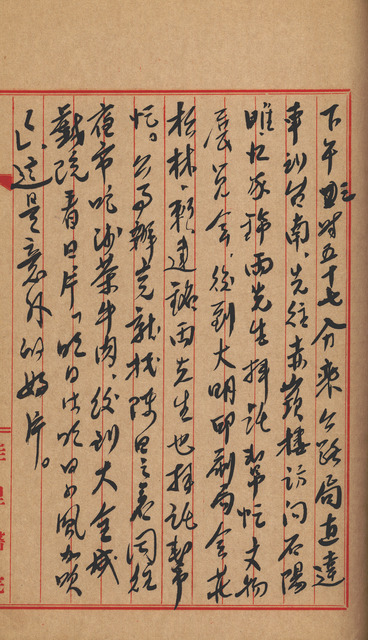 下午四時五十七分乘公路局直達
車到台南、先往赤嵌樓訪問石陽
睢、江家錦兩先生拜託幫忙文物
展覽會、後到大明印刷局會莊
松林、賴建銘兩先生也拜託幫
忙。公事辦完就找陳
夜市吃沙茶牛肉、後到大全成
戲院看日片「明日は明日の風が吹
く」、這是意外的好片。